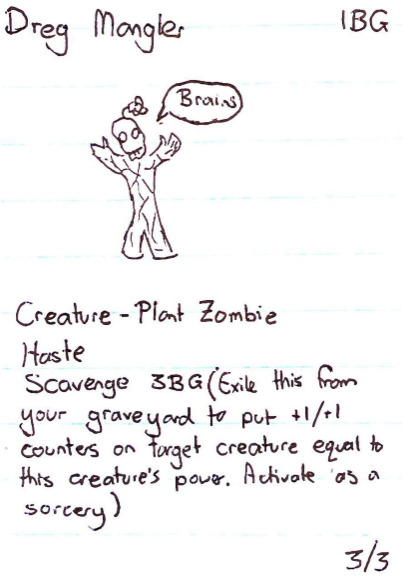 Dreg Mangler 1BG
Brains
Creature - Plant Zombie
Haste
Scavenge 3BG (Exile this from
your graveyard to put +1/+1
counters on target creature equal to
this creature's power. Activate as a
sorcery)
3/3